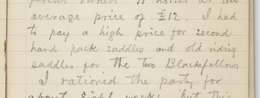 average price of £12. I had
to pay a high price for second
hand pack saddles and old riding
saddles for the two Blackfellows
I rationed the party for
about eight weeks but this